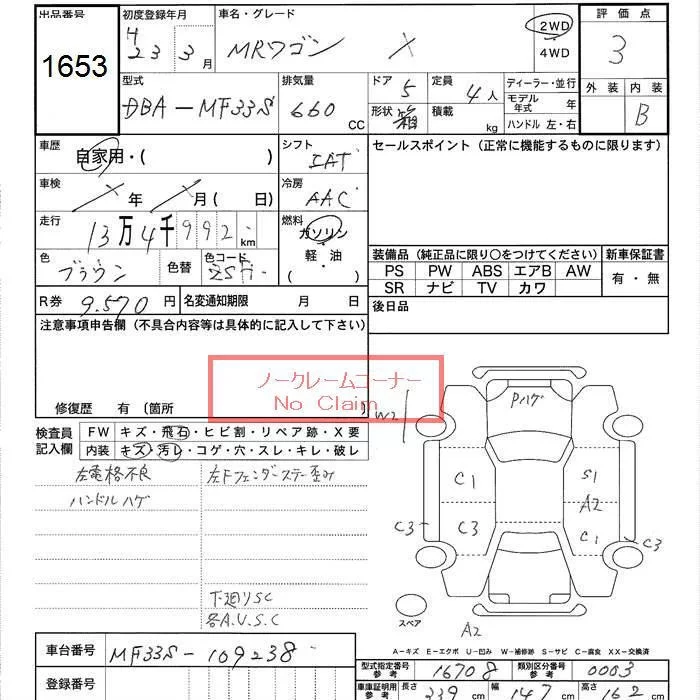 出品番号
1653
初度登録年月
H
23 3月
車名・グレード
MRワゴン X
2WD
4WD
評価点
3
外装 内装
B
型式
DBA-MF33S
排気量
660 CC
ドア 5
形状 箱
定員 4人
積載 kg
ディーラー・並行
モデル年式 年
ハンドル 左・右
車歴
自家用・( )
シフト
IAT
セールスポイント（正常に機能するものに限ります）
車検
年 月( 日)
冷房
AAC
走行
13万4千992 km
燃料
ガソリン
軽・油
( )
色
ブラウン
色替
色コード
装備品（純正品に限り○をつけてください）
新車保証書
PS PW ABS エアB AW
SR ナビ TV カワ
有・無
R券 9.570円
名変通知期限 月 日
後日品
注意事項申告欄（不具合内容等は具体的に記入して下さい）
ノークレームコーナー
No Claim
修復歴 有 〔箇所
W2
検査員記入欄
FW キズ・飛石・ヒビ割・リペア跡・X要
内装 キズ・汚レ・コゲ・穴・スレ・キレ・破レ
左電格不良
左Fフェンダーステー歪み
ハンドルハゲ
下廻りSC
各A.U.S.C
Pハゲ
C1
S1
A2
C3
C3
C1
C3
スペア
A2
A-キズ E-エクボ U-凹み W-補修跡 S-サビ C-腐食 XX-交換済
車台番号
MF33S-109238
登録番号
型式指定番号 参考
16708
類別区分番号 参考
0003
車庫証明用 参考
長さ 339 cm
幅 147 cm
高さ 162 cm